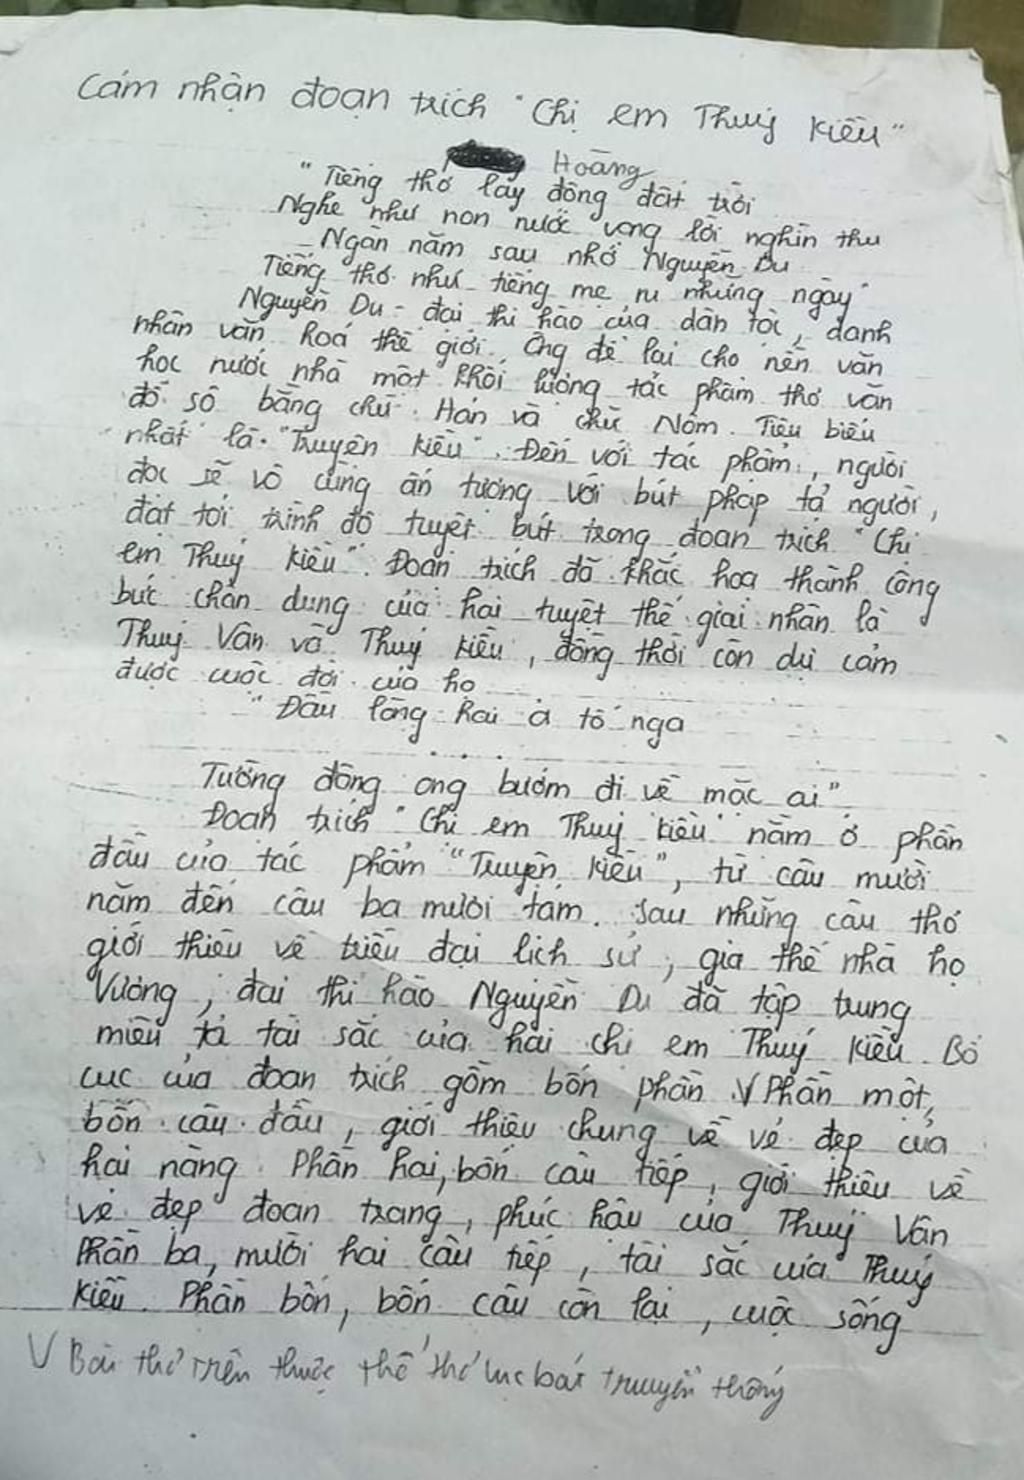 Cảm nhận đoạn trích "Chị em Thuý Kiều"
Hoàng
"Tiếng thơ lay động đất trời
Nghe như non nước vọng lời nghìn thu
Ngàn năm sau nhớ Nguyễn Du
Tiếng thơ như tiếng mẹ ru những ngày"
Nguyễn Du - đại thi hào của dân tộc, danh
nhân văn hoá thế giới. Ông để lại cho nền văn
học nước nhà một khối lượng tác phẩm thơ văn
đồ sộ bằng chữ Hán và chữ Nôm. Tiêu biểu
nhất là "Truyện Kiều". Đến với tác phẩm, người
đọc sẽ vô cùng ấn tượng với bút pháp tả người,
đạt tới trình độ tuyệt bút trong đoạn trích "Chị
em Thuý Kiều". Đoạn trích đã khắc hoạ thành công
bức chân dung của hai tuyệt thế giai nhân là
Thuý Vân và Thuý Kiều, đồng thời còn dự cảm
được cuộc đời của họ
"Đầu lòng hai ả tố nga
.....
Tường đông ong bướm đi về mặc ai"
Đoạn trích "Chị em Thuý Kiều" nằm ở phần
đầu của tác phẩm "Truyện Kiều", từ câu mười
năm đến câu ba mươi tám. Sau những câu thơ
giới thiệu về triều đại lịch sử, gia thế nhà họ
Vương, đại thi hào Nguyễn Du đã tập trung
miêu tả tài sắc của hai chị em Thuý Kiều. Bố
cục của đoạn trích gồm bốn phần. V Phần một,
bốn câu đầu, giới thiệu chung về vẻ đẹp của
hai nàng. Phần hai, bốn câu tiếp, giới thiệu về
vẻ đẹp đoan trang, phúc hậu của Thuý Vân
Phần ba, mười hai câu tiếp, tài sắc của Thuý
Kiều. Phần bốn, bốn câu còn lại, cuộc sống
V Bài thơ trên thuộc thể thơ lục bát truyền thống